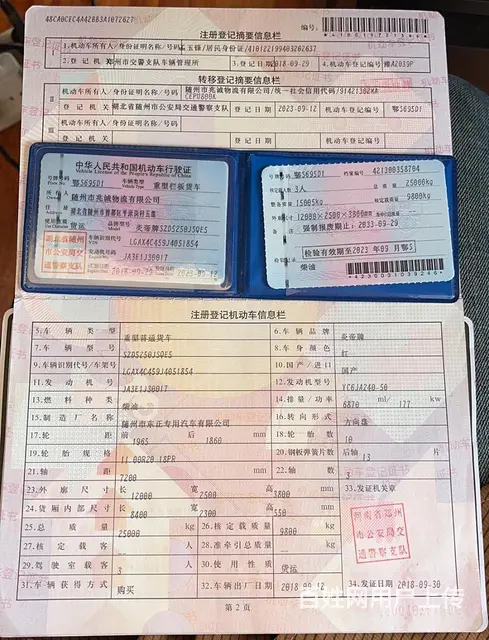 48CA0CEC4AA2BB3A1072627
编号:
注册登记摘要信息栏
1.机动车所有人/身份证明名称/号码 王锋/居民身份证/410122199403202637
2.登记机关 郑州市交警支队车辆管理所 3.登记日期 2018-09-29 4.机动车登记编号 豫A2039P
转移登记摘要信息栏
Ⅱ 机动车所有人/身份证明名称/号码 随州市兆诚物流有限公司/统一社会信用代码/
登记机关 湖北省随州市公安局交通警察支队 登记日期 2023-09-12 机动车登记编号 鄂S695D1
Ⅲ 机动车所有人/身份证明名称/号码
登记机关 登记日期 机动车登记编号
中华人民共和国机动车行驶证
Vehicle License of the People's Republic of China
号牌号码 鄂S695D1 车辆类型 重型栏板货车
Plate No. Vehicle Type
所有人 随州市兆诚物流有限公司
住址
使用性质 货运 品牌型号 炎帝牌SZD5250JSQE5
湖北省随州市公安局交通警察支队
车辆识别代号 LGAX4C459J4051854
VIN
发动机号码 JA3E1J30017
注册日期 2018-09-29 发证日期 2023-09-12
号牌号码 鄂S695D1 档案编号 421300358704
核定载人数 3人 总质量 25000kg
整备质量 15005kg 核定载质量 9800kg
外廓尺寸 12000×2500×3800mm 准牵引总质量
备注 强制报废期止:2033-09-29
检验有效期至2023年09月鄂S
检验记录
柴油
*42300031039246*
注册登记机动车信息栏
5.车辆类型 重型普通货车 6.车辆品牌 炎帝牌
7.车辆型号 SZD5250JSQE5 8.车身颜色 红
9.车辆识别代号/车架号 LGAX4C459J4051854 10.国产/进口 国产
11.发动机号 JA3E1J30017 12.发动机型号 YC6JA240-50
13.燃料种类 柴油 14.排量/功率 6870 ml/ 177 kw
15.制造厂名称 随州市东正专用汽车有限公司 16.转向形式 方向盘
17.轮距 前 1965 后 1860 mm 18.轮胎数 10
19.轮胎规格 11.00R20 18PR 20.钢板弹簧片数 后轴 13 片
21.轴距 7200 mm 22.轴数 3
23.外廓尺寸 长 12000 宽 2500 高 3800 mm 33.发证机关章
24.货厢内部尺寸 长 8400 宽 2300 高 550 mm
25.总质量 25000 kg 26.核定载质量 9800 kg
27.核定载客 人 28.准牵引总质量 kg
29.驾驶室载客 3 人 30.使用性质 货运
31.车辆获得方式 购买 32.车辆出厂日期 2018-09-12 34.发证日期 2018-09-30
河南省郑州
市公安局交
通警察支队
第2页
百姓网用户上传